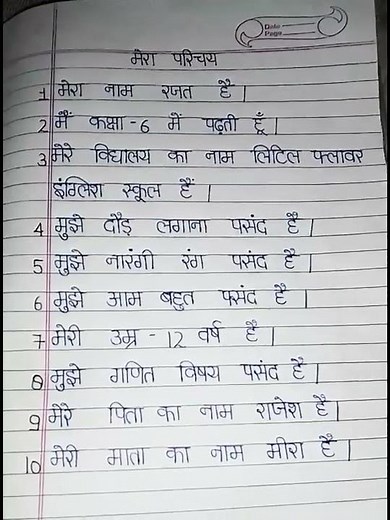 Date
Page
मेरा परिचय
1 मेरा नाम रजत है |
2 मैं कक्षा - 6 में पढ़ती हूँ |
3 मेरे विद्यालय का नाम लिटिल फ्लावर
इंग्लिश स्कूल हैं |
4 मुझे दौड़ लगाना पसंद है |
5 मुझे नारंगी रंग पसंद है |
6 मुझे आम बहुत पसंद है |
7 मेरी उम्र - 12 वर्ष है |
8 मुझे गणित विषय पसंद है |
9 मेरे पिता का नाम राजेश है |
10 मेरी माता का नाम मीरा है |